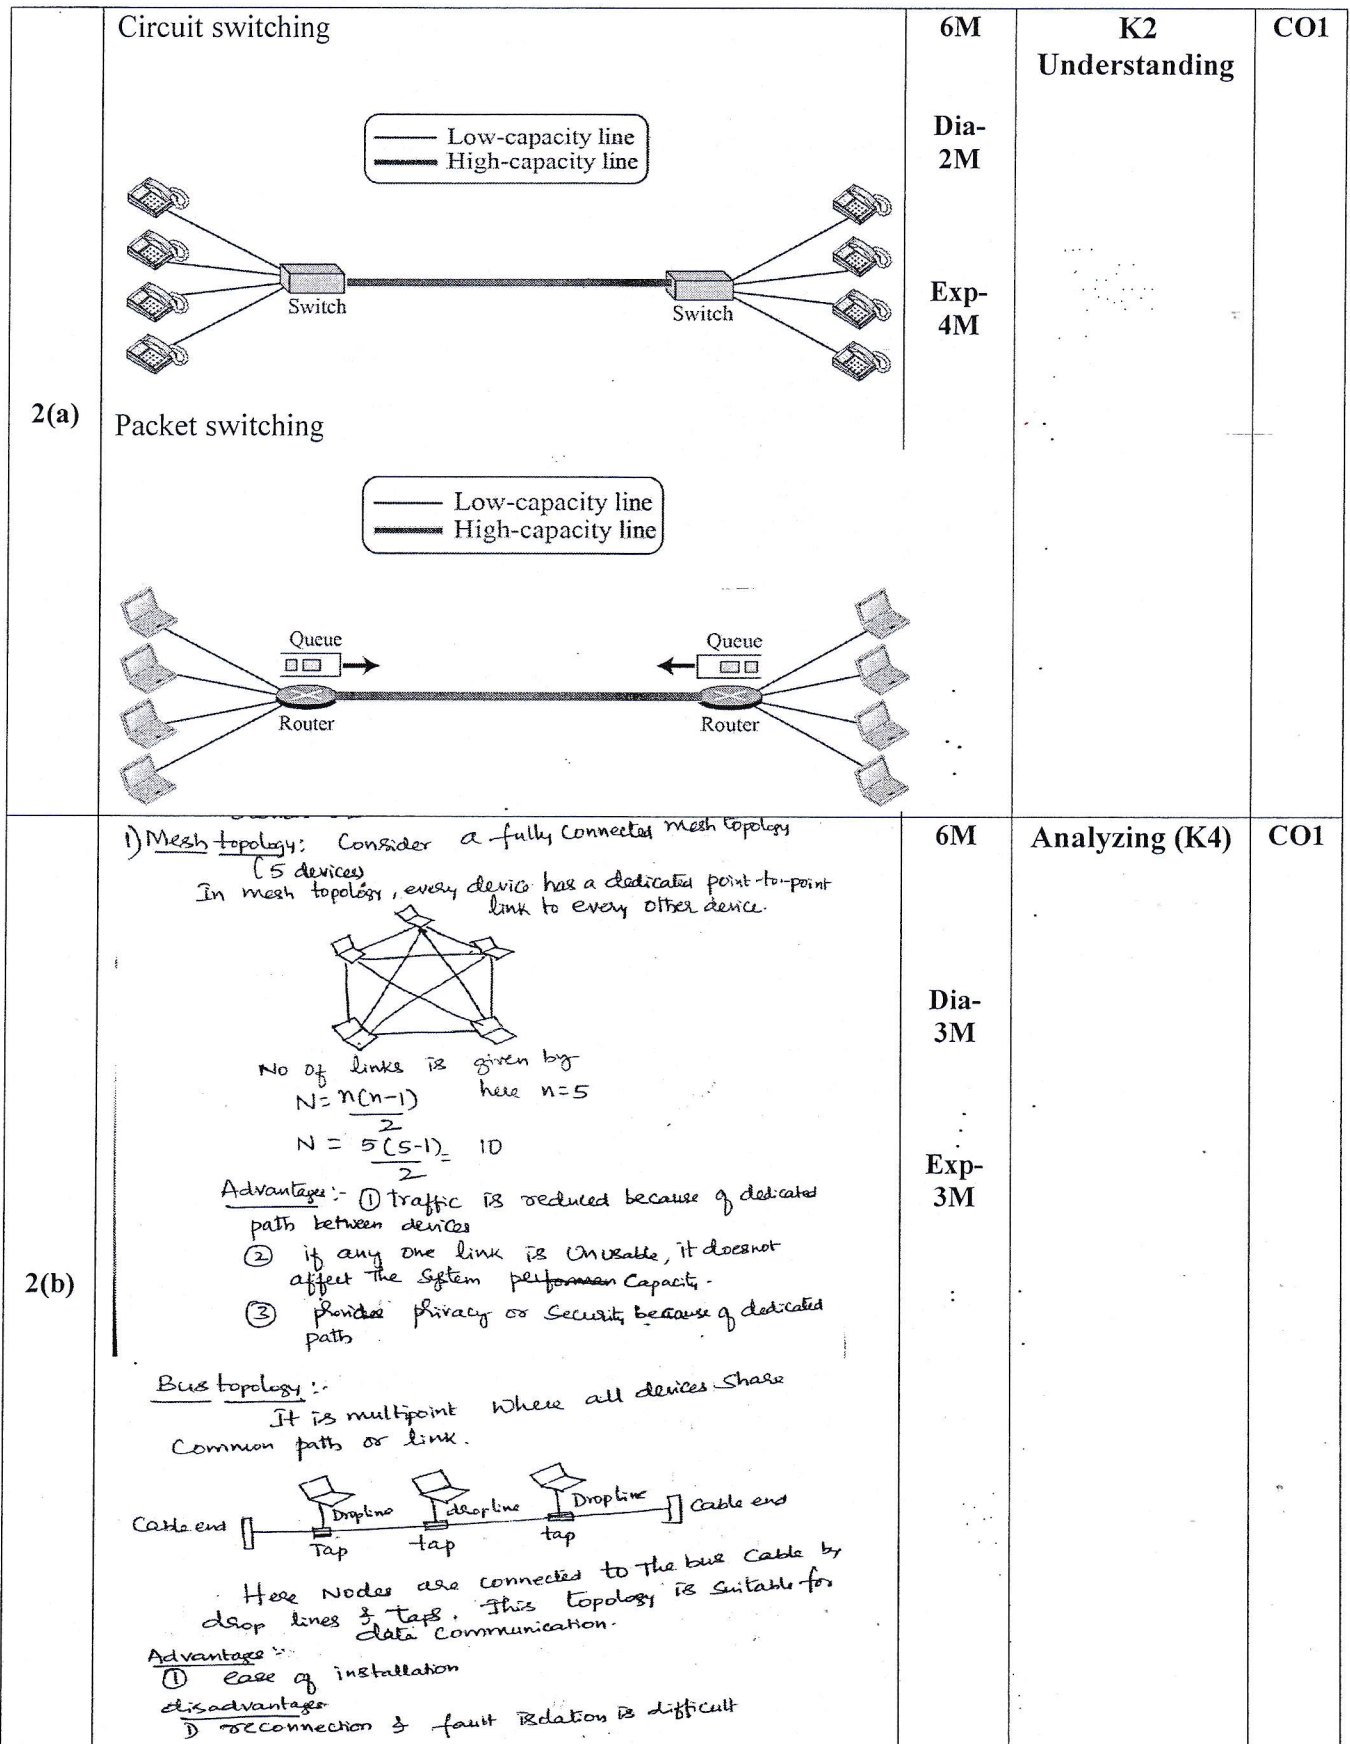 Circuit switching
6M
K2
Understanding
CO1
Low-capacity line
High-capacity line
Dia-
2M
Switch
Switch
Exp-
4M
2(a)
Packet switching
Low-capacity line
High-capacity line
Queue
Queue
Router
Router
1) Mesh topology: Consider a fully Connected mesh topology
(5 devices)
In mesh topology, every device has a dedicated point-to-point
link to every other device.
6M
Analyzing (K4)
CO1
Dia-
3M
No of links is given by
N= n(n-1)/2 here n=5
N = 5(5-1)/2 = 10
Exp-
3M
Advantages:- ① traffic is reduced because of dedicated
path between devices
② if any one link is Unusable, it doesnot
affect the System Capacity.
③ provides privacy or Security because of dedicated
path
2(b)
Bus topology:-
It is multipoint Where all devices Share
Common path or link.
Dropline dropline Dropline
Cable end Cable end
Tap tap tap
Here Nodes are connected to the bus Cable by
drop lines & taps. This topology is Suitable for
data Communication.
Advantages:-
① ease of installation
disadvantages
1) reconnection & fault isolation is difficult